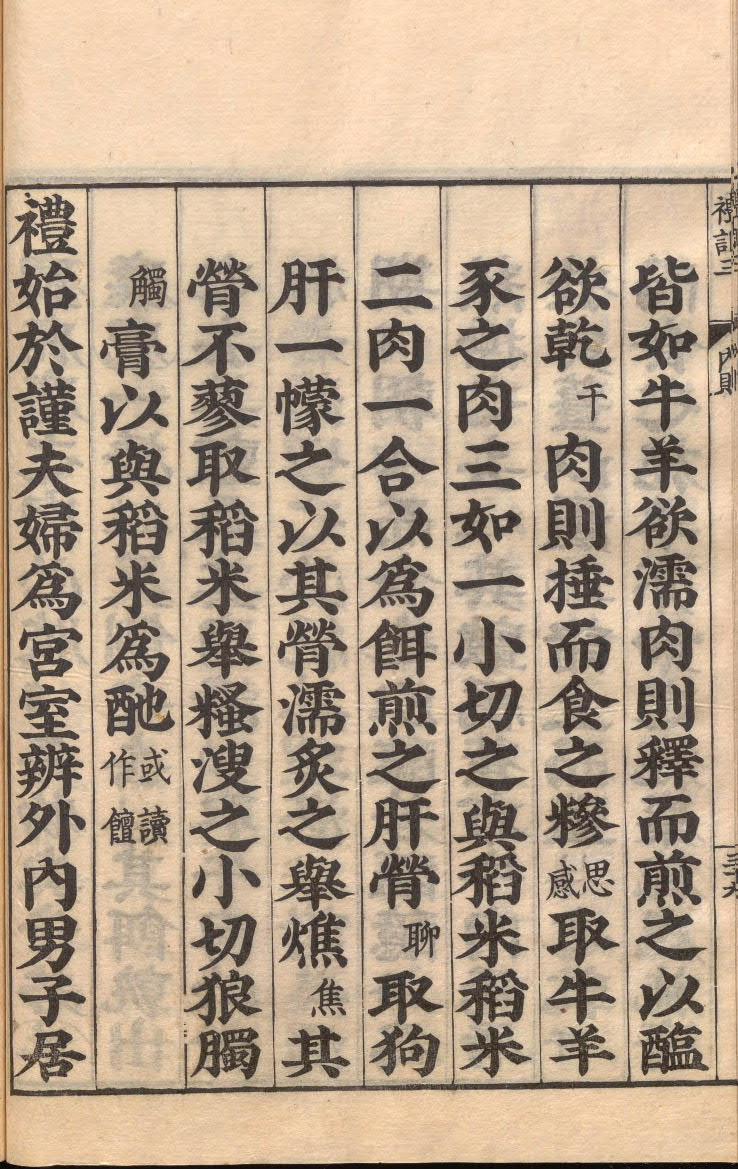 內則
皆如牛羊欲濡肉則釋而煎之以醢
欲乾干肉則捶而食之糝思感取牛羊
豕之肉三如一小切之與稻米稻米
二肉一合以爲餌煎之肝膋聊取狗
肝一幪之以其膋濡炙之舉燋焦其
膋不蓼取稻米舉糔溲之小切狼臅
觸膏以與稻米爲酏或讀作饘
禮始於謹夫婦爲宮室辨外內男子居